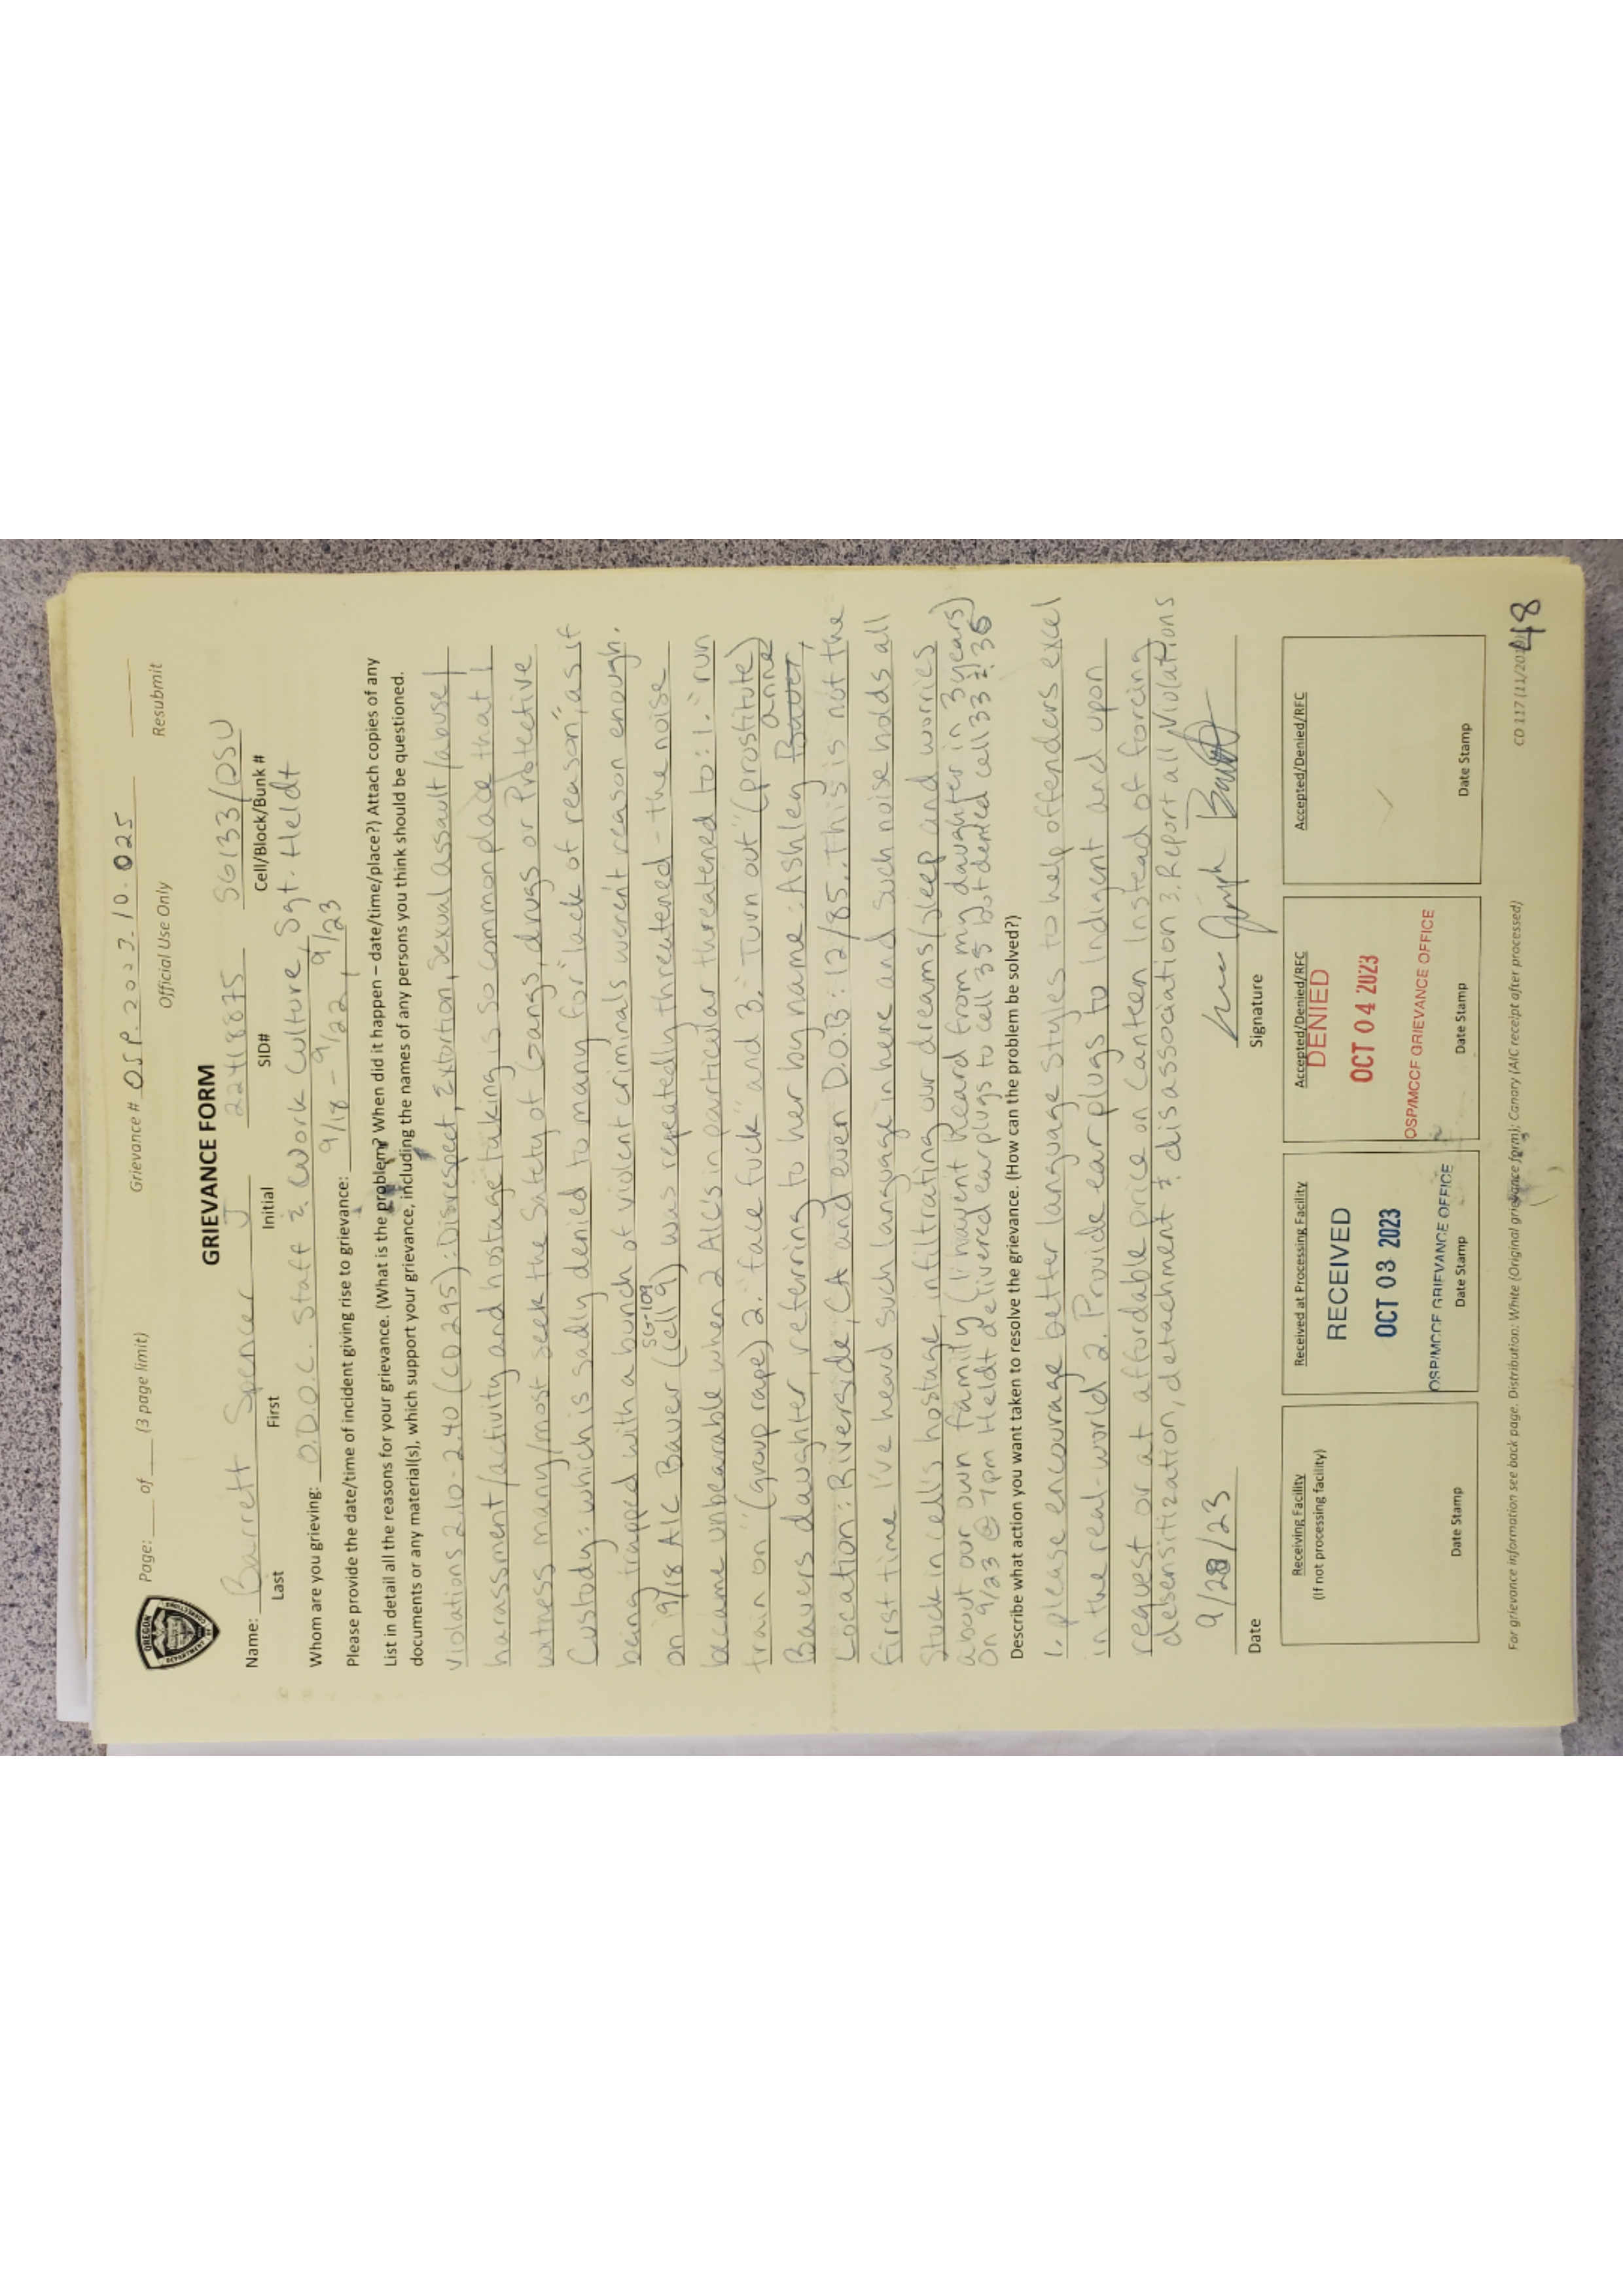 OREGON
DEPARTMENT OF
CORRECTIONS
Page: ___ of ___ (3 page limit)
Grievance # OSP.2023.10.025
Official Use Only
Resubmit
GRIEVANCE FORM
Name: Barrett Spencer J 22418875 SG133/DSU
Last First Initial SID# Cell/Block/Bunk #
Whom are you grieving: O.D.O.C. Staff & (Work Culture, Sgt. Heldt
Please provide the date/time of incident giving rise to grievance: 9/18 - 9/22, 9/23
List in detail all the reasons for your grievance. (What is the problem? When did it happen – date/time/place?) Attach copies of any
documents or any material(s), which support your grievance, including the names of any persons you think should be questioned.
Violations 2.10-2.40 (CD295): Disrespect, Extortion, Sexual assault/abuse/
harassment/activity and hostage taking is so common place that I
witness many/most seek the Safety of Gangs, drugs or Protective
Custody: which is sadly denied to many for "lack of reason", as if
being trapped with a bunch of violent criminals weren't reason enough.
SG-109
on 9/18 AIC Bauer (cell 9) was repeatedly threatened - the noise
became unbearable when 2 AIC's in particular threatened to: 1. "run
train on" (group rape) 2. "face fuck" and 3. "Turn out" (prostitute)
anne
Bauers daughter, referring to her by name: Ashley Bauer,
Location: Riverside, CA and even D.O.B: 12/85. This is not the
first time I've heard such language in here and such noise holds all
Stuck in cells hostage, infiltrating our dreams/sleep and worries
about our own family (I haven't heard from my daughter in 3 years)
On 9/23 @ 7pm Heldt delivered ear plugs to cell 35 but denied cell 33 & 36
Describe what action you want taken to resolve the grievance. (How can the problem be solved?)
1. please encourage better language styles to help offenders excel
in the real-world 2. Provide ear plugs to Indigent and upon
request or at affordable price on Canteen Instead of forcing
desensitization, detachment & disassociation 3. Report all Violations
9/28/23
Date Signature
Receiving Facility
(If not processing facility)
Date Stamp
Received at Processing Facility
RECEIVED
OCT 03 2023
OSP/MCCF GRIEVANCE OFFICE
Date Stamp
Accepted/Denied/RFC
DENIED
OCT 04 2023
OSP/MCCF GRIEVANCE OFFICE
Date Stamp
Accepted/Denied/RFC
Date Stamp
For grievance information see back page. Distribution: White (Original grievance form); Canary (AIC receipt after processed)
CD 117 (11/20
48